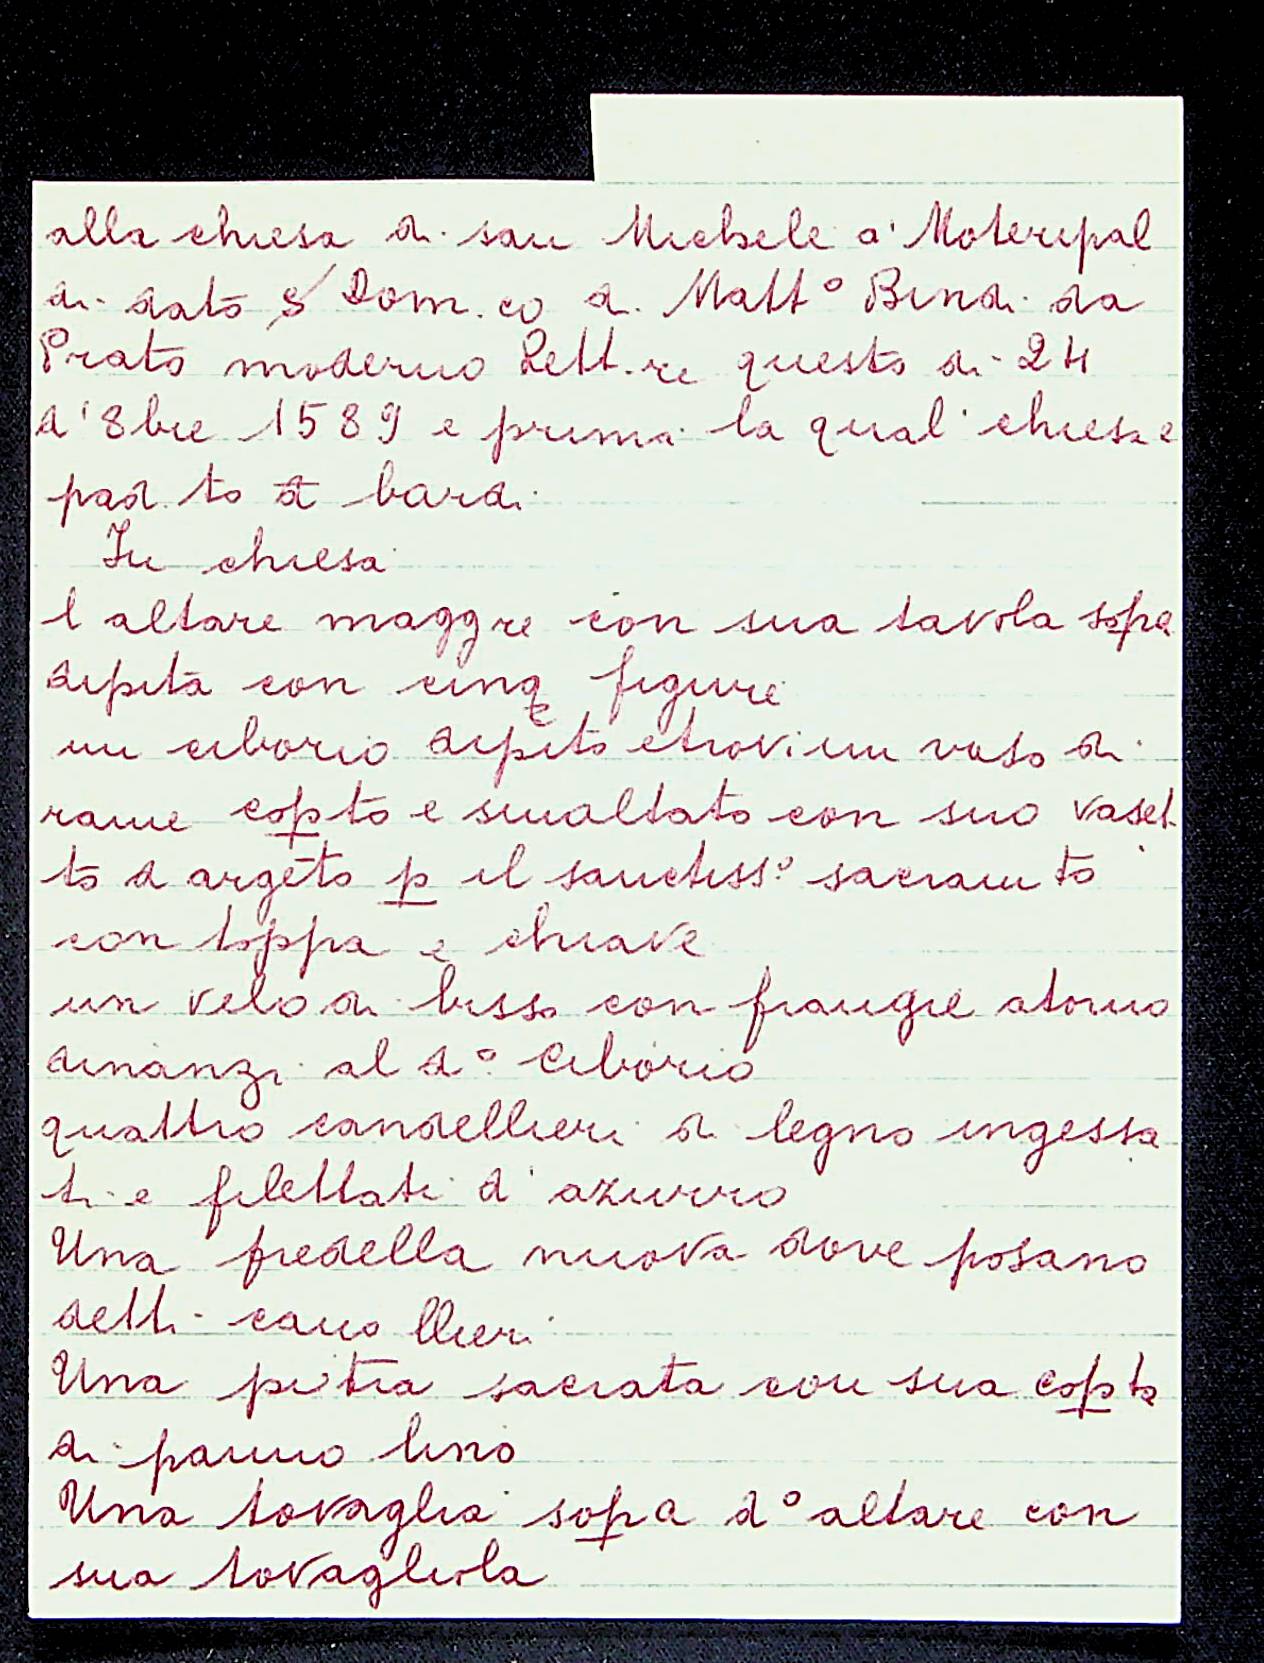 alla chiesa di san Michele a' Moteripal
di dato S Dom.co d. Matt° Bindi da
Prato moderno Rett.re questo di 24
d'8bre 1589 e prima la qual' chiesa e
pad.to d bardi
In chiesa
l altare maggre con sua tavola sopa
dipita con cinq figure
un ciborio dipito etrovi un vaso di
rame copto e smaltato con suo vaset
to d argēto p il sanctiss° sacram to
con toppa e chiave
un velo di bisso con frangie atorno
dinanzi al d° Ciborio
quattro candellieri di legno ingessa
ti e filettati d'azurro
Una predella nuova dove posano
detti cand llieri
Una pietra sacrata con sua copta
di panno lino
Una tovaglia sopa d° altare con
sua tovagliola